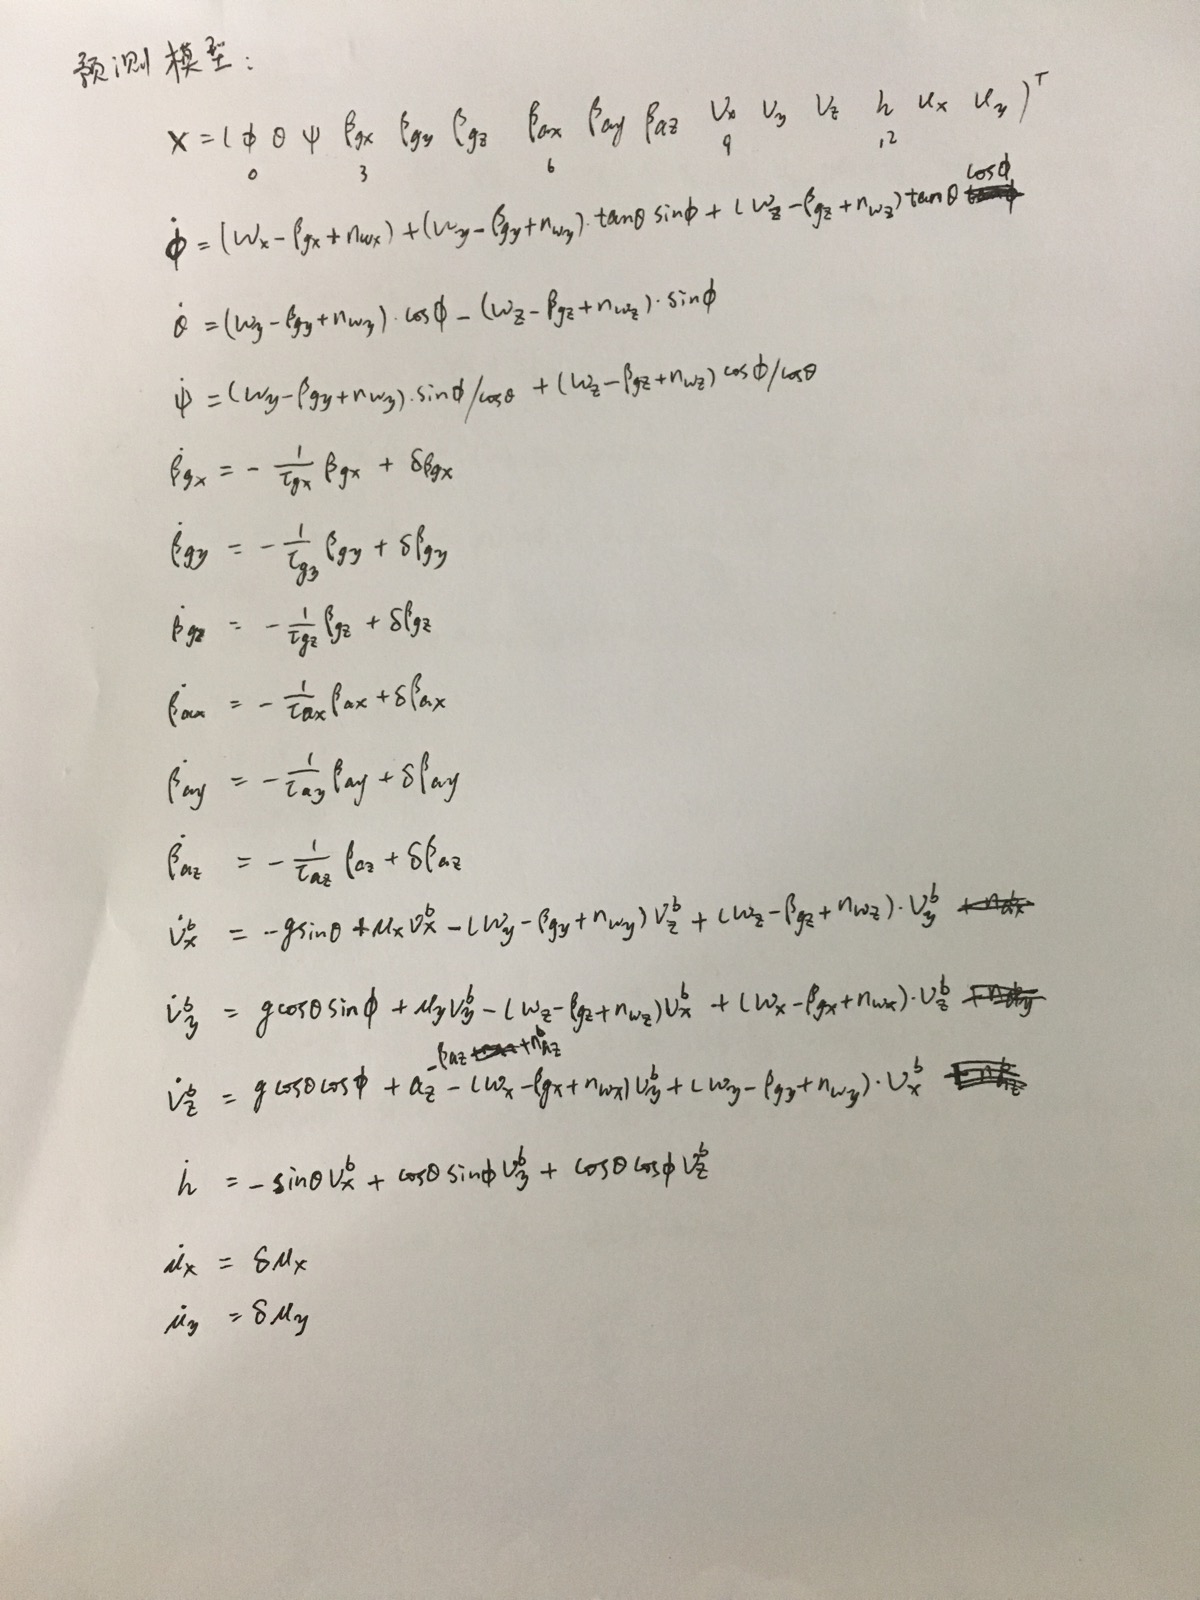 预测模型:
X = ( ϕ θ ψ βgx βgy βgz βax βay βaz Vx Vy Vz h μx μy )ᵀ
0 3 6 9 12
ϕ̇ = (ωx − βgx + nωx) + (ωy − βgy + nωy)·tanθ sinϕ + (ωz − βgz + nωz) tanθ cosϕ
θ̇ = (ωy − βgy + nωy)·cosϕ − (ωz − βgz + nωz)·sinϕ
ψ̇ = (ωy − βgy + nωy)·sinϕ/cosθ + (ωz − βgz + nωz) cosϕ/cosθ
β̇gx = − 1/τgx βgx + δβgx
β̇gy = − 1/τgy βgy + δβgy
β̇gz = − 1/τgz βgz + δβgz
β̇ax = − 1/τax βax + δβax
β̇ay = − 1/τay βay + δβay
β̇az = − 1/τaz βaz + δβaz
V̇xᵇ = −gsinθ + μxVxᵇ − (ωy − βgy + nωy)Vzᵇ + (ωz − βgz + nωz)·Vyᵇ
V̇yᵇ = gcosθsinϕ + μyVyᵇ − (ωz − βgz + nωz)Vxᵇ + (ωx − βgx + nωx)·Vzᵇ
V̇zᵇ = gcosθcosϕ + az − βaz + nᵇaz − (ωx − βgx + nωx)Vyᵇ + (ωy − βgy + nωy)·Vxᵇ
ḣ = −sinθVxᵇ + cosθsinϕVyᵇ + cosθcosϕVzᵇ
μ̇x = δμx
μ̇y = δμy